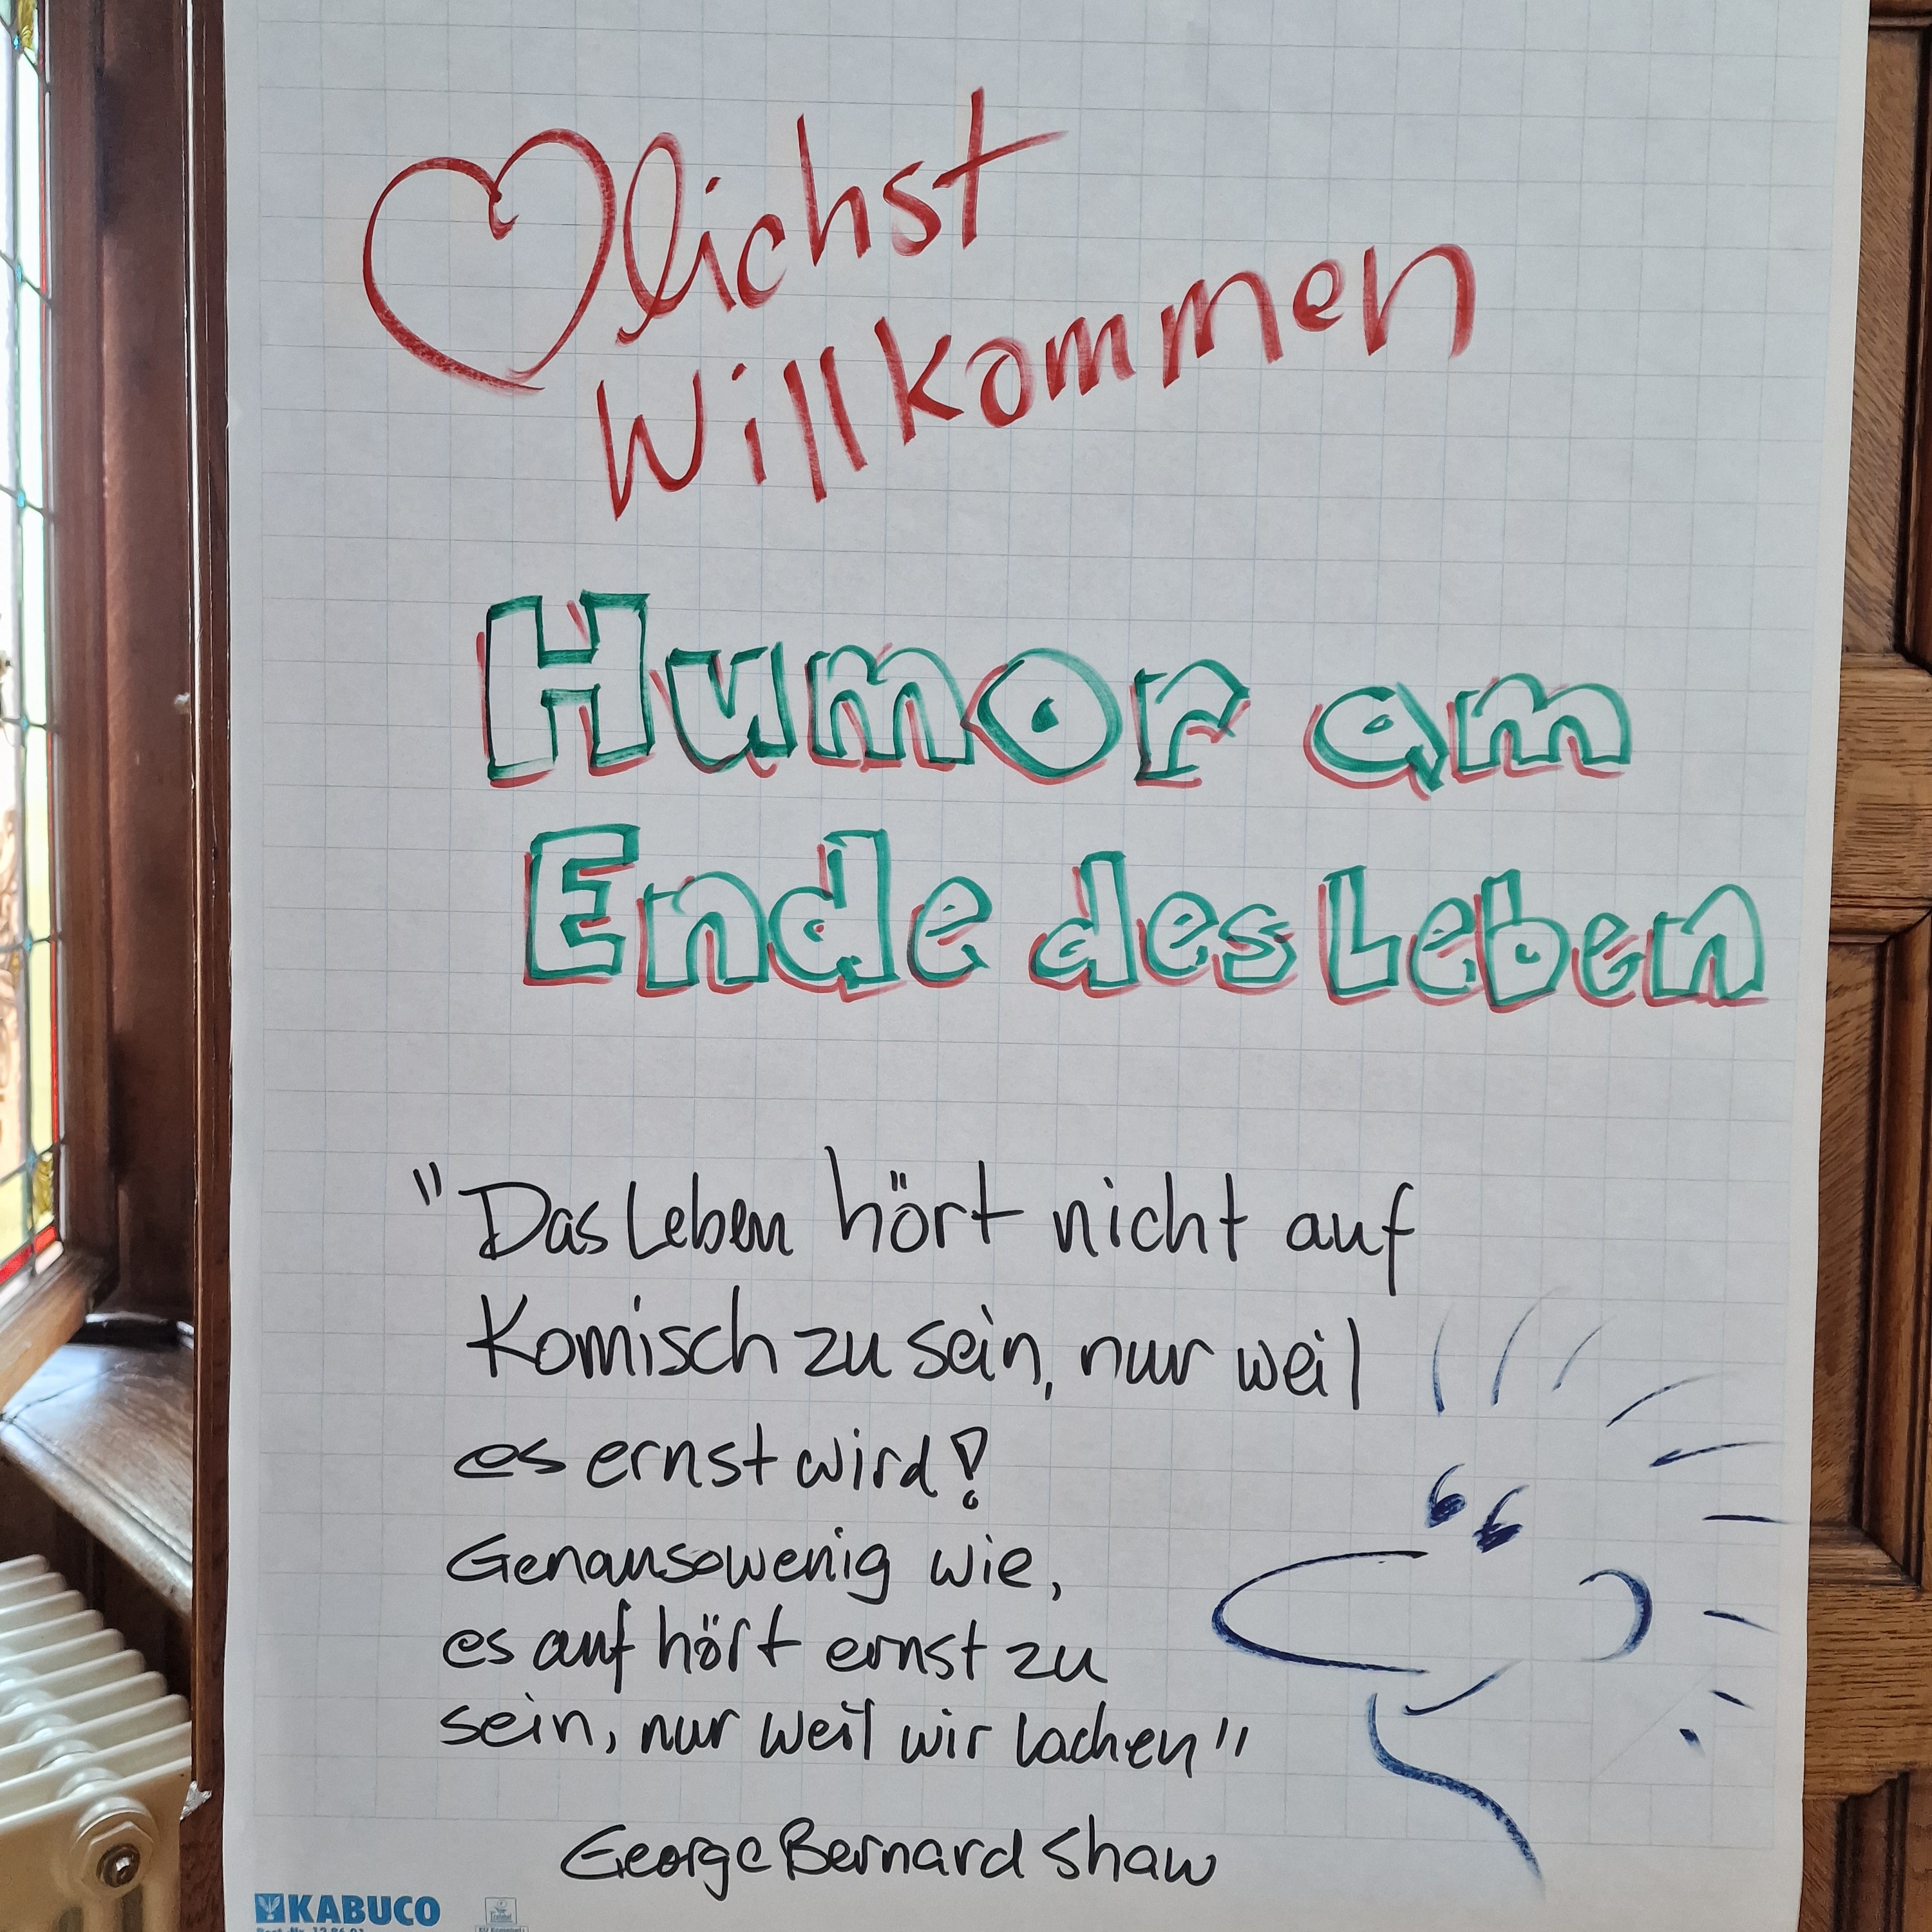 lichst
Willkommen
Humor am
Ende des Leben
"Das Leben hört nicht auf
Komisch zu sein, nur weil
es ernst wird!
Genausowenig wie,
es auf hört ernst zu
sein, nur weil wir lachen"
George Bernard Shaw
KABUCO